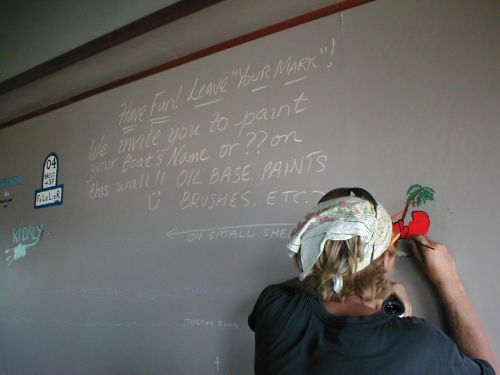 Have Fun! Leave "Your Mark"!
We invite you to paint
your Boat's Name or ?? on
this wall!! OIL BASE PAINTS
BRUSHES, ETC.?
ON SMALL SHE
04
FULULIER
KIDALY